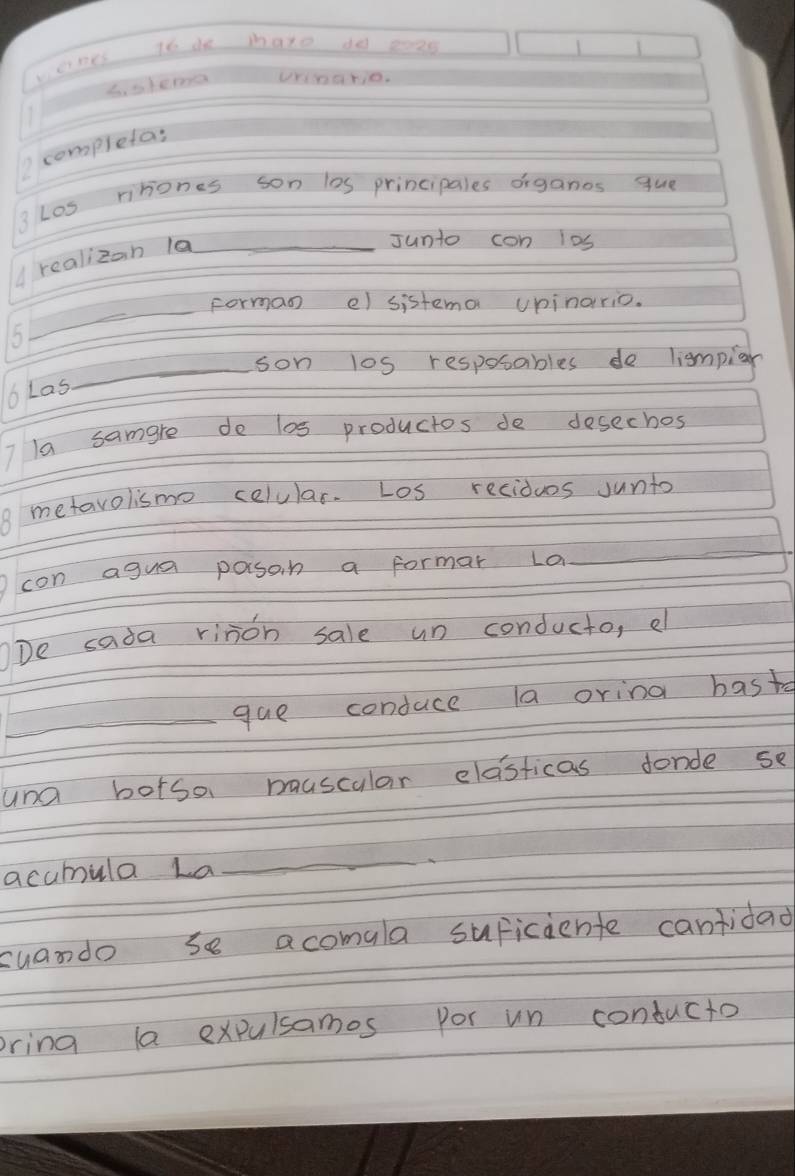 viernes 16 de mayo del 2025
sistema urinario.
1
2 completa:
3 Los riñones son los principales órganos que
4 realizan la ________ Junto con los
5 ________ Forman el sistema urinario.
6 Las ________ son los resposables de liempiar
7 la samgre de los productos de desechos
8 metavolismo celular. Los reciduos Junto
9 con agua pasan a Formar La ________.
0 De cada riñón sale un conducto, el
________ que conduce la orina hasta
una borsa muscular elásticas donde se
acumula La ________.
cuando se acomula suficiente cantidad
orina la expulsamos por un conducto